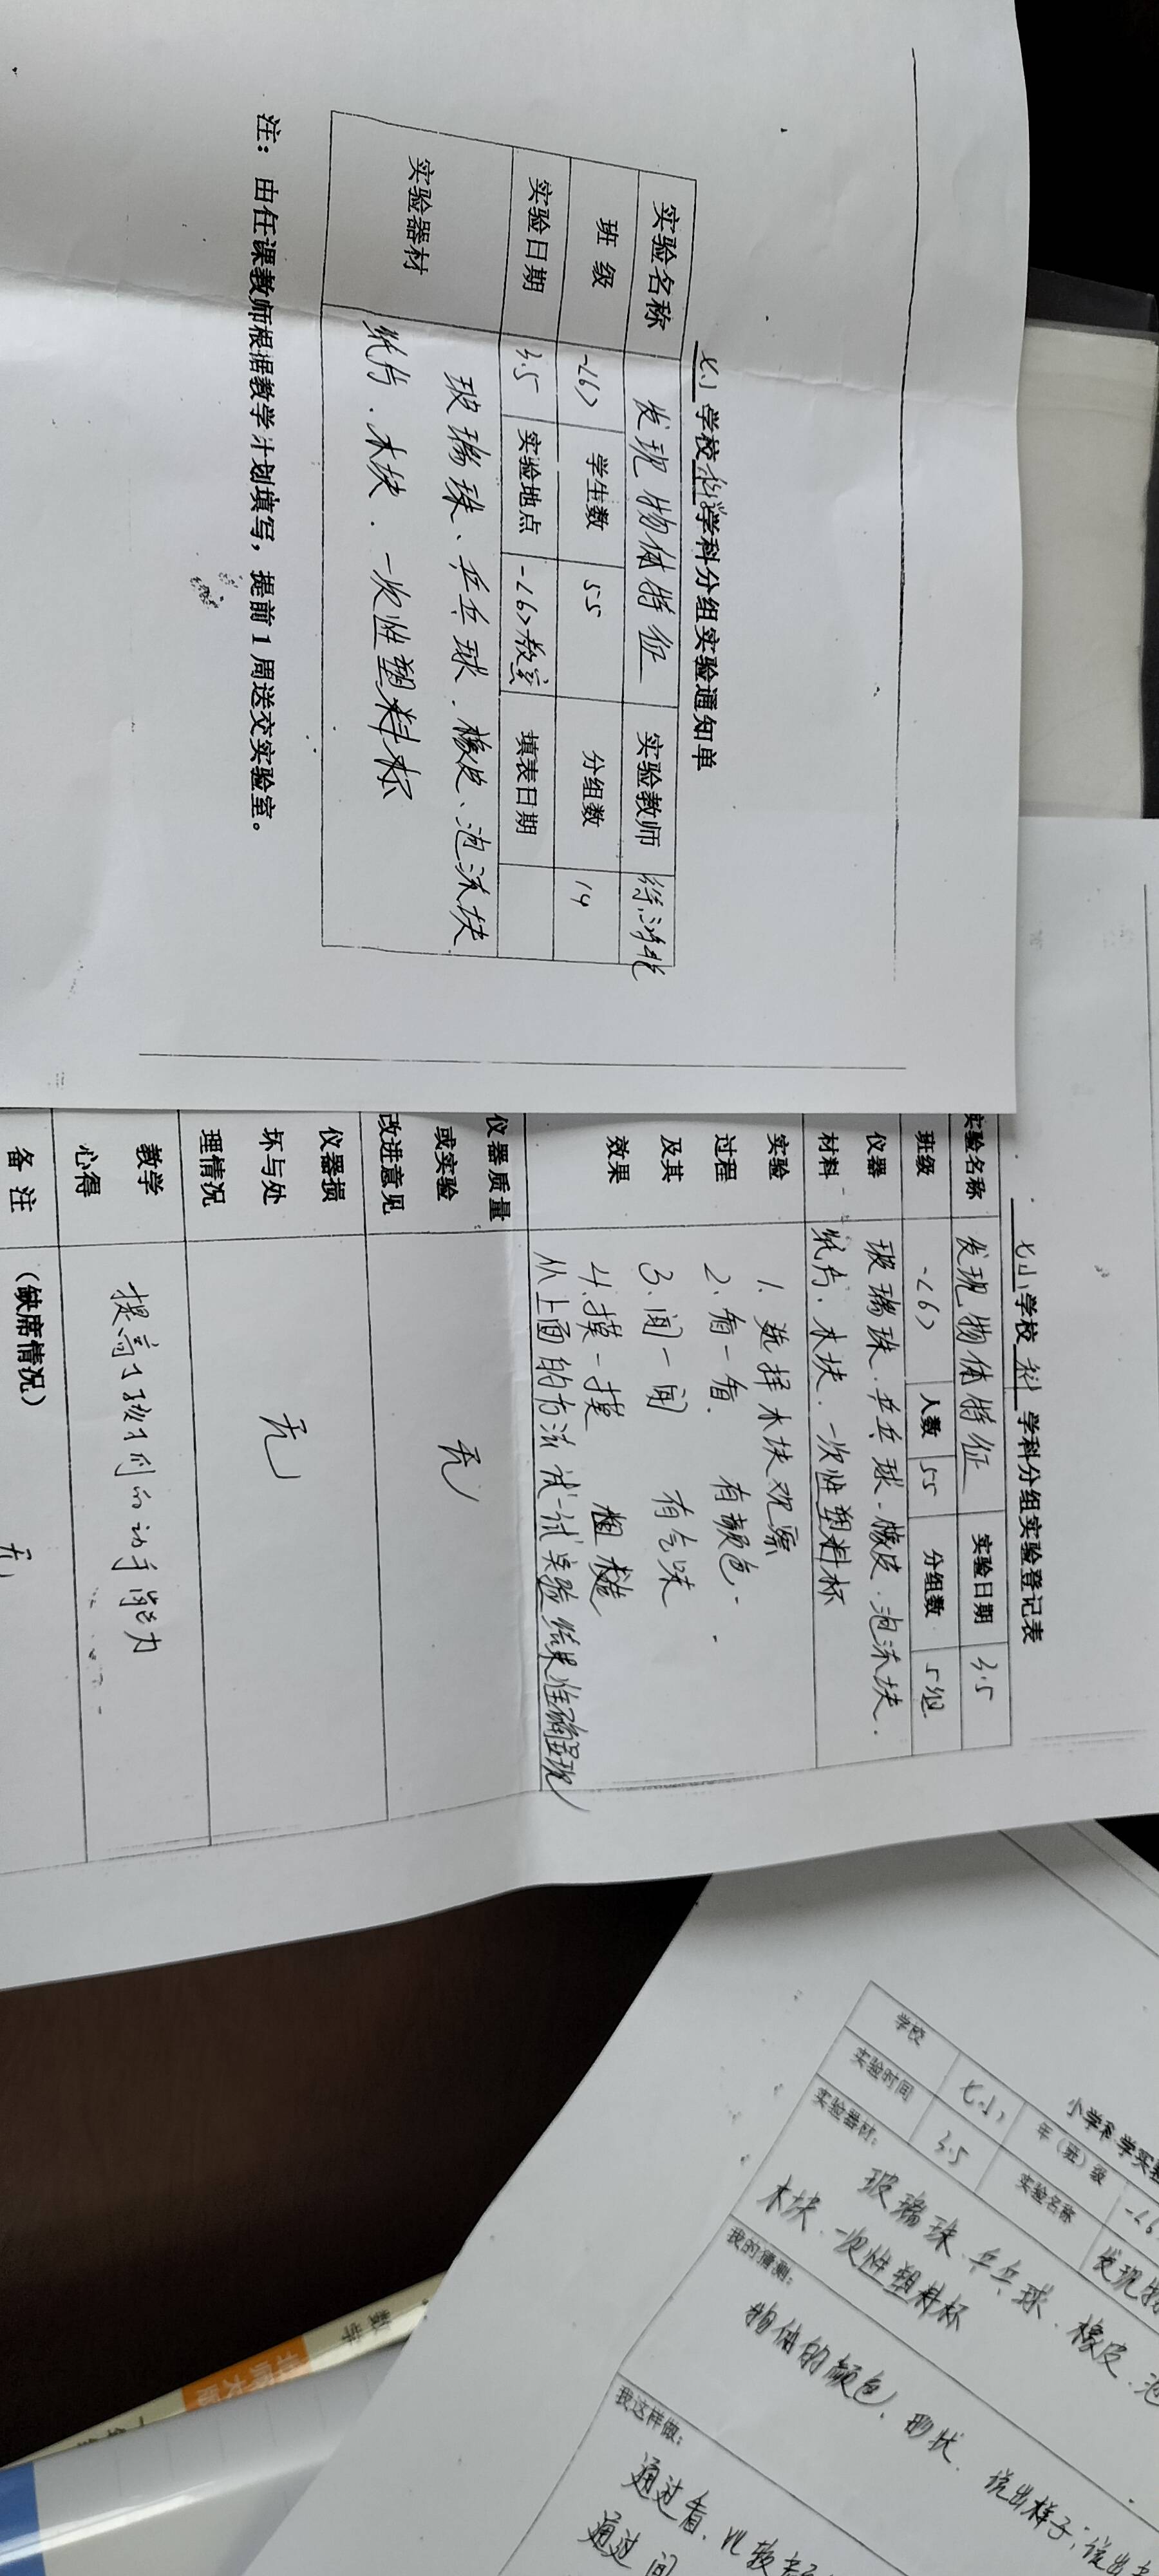 七小学校科学学科分组实验通知单
实验名称 发现物体特征 实验教师
班 级 一<6> 学生数 55 分组数 14
实验日期 3.5 实验地点 一<6>教室 填表日期
实验器材 玻璃珠、乒乓球、橡皮、泡沫块
纸片、木块、一次性塑料杯
注：由任课教师根据教学计划填写，提前1周送交实验室。
七小学校 科学 学科分组实验登记表
实验名称 发现物体特征 实验日期 3.5
班级 一<6> 人数 55 分组数 5组
仪器 玻璃珠、乒乓球、橡皮、泡沫块、
材料 纸片、木块、一次性塑料杯
实验 1、选择木块观察
过程 2、看一看、 有颜色
及其 3、闻一闻 有气味
效果 4、摸一摸 粗糙
从上面的方法试一试实验结果准确呈现
仪器质量
或实验 无
改进意见
仪器损
坏与处 无
理情况
教学 提高了孩子们的动手能力
心得
备 注 （缺席情况） 无
小学科学实验
学校 七小 年（班）级 一<6
实验时间 3.5 实验名称 发现物
实验器材：
玻璃珠、乒乓球、橡皮、泡
木块、一次性塑料杯
我的猜测：
物体的颜色、形状、说出样子；说出
我这样做：
通过看、比较
通过闻
数学
北师大版